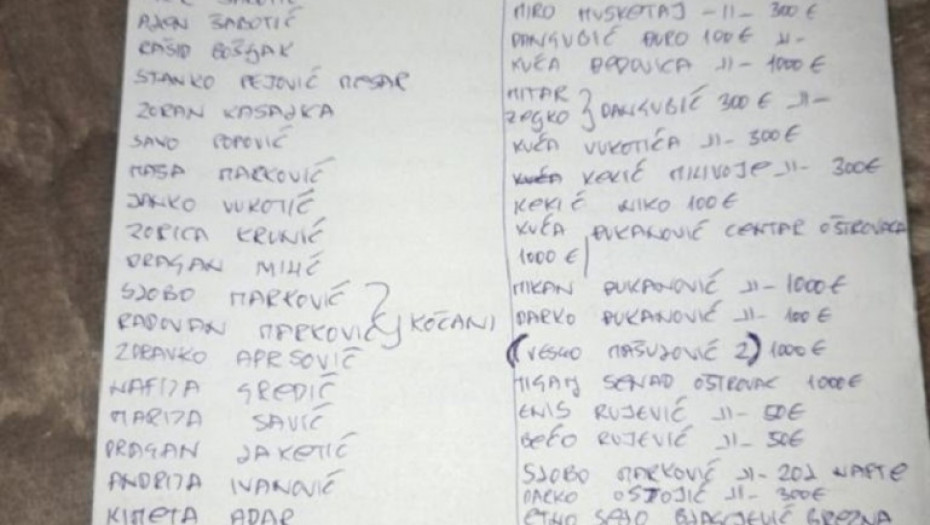 ZABOTIĆ
RAŠID BOŠJAK
STANKO PEJOVIĆ MESAR
ZORAN KASAJKA
SAVO POPOVIĆ
MAŠA MARKOVIĆ
JANKO VUKOTIĆ
ZORICA KRUNIĆ
DRAGAN MILIĆ
SLOBO MARKOVIĆ } KOČANI
RADOVAN MARKOVIĆ
ZDRAVKO APRSOVIĆ
NAFIJA GREDIĆ
MARIJA SAVIĆ
DRAGAN JAKETIĆ
ANDRIJA IVANOVIĆ
KIMETA ADAR
MIRO MUSKETAJ -II- 300 €
DANGUBIĆ ĐURO 100 € JI-
KUĆA JI- 1000 €
MITAR } DANGUBIĆ 300 € JI-
KUĆA VUKOTIĆA JI- 300 €
KEKIĆ MILIVOJE JI- 300 €
KEKIĆ NIKO 100 €
KUĆA ĐUKANOVIĆ CENTAR OŠTROVACA
1000 €
MIKAN ĐUKANOVIĆ JI- 1000 €
DARKO ĐUKANOVIĆ JI- 100 €
(VESKO MAŠULOVIĆ 2) 1000 €
SENAD OŠTROVAC 1000 €
ENIS RUJEVIĆ JI- 50 €
BEĆO RUJEVIĆ JI- 50 €
SLOBO MARKOVIĆ JI- 20J NAFTE
DARKO OSTOJIĆ JI- 300 €